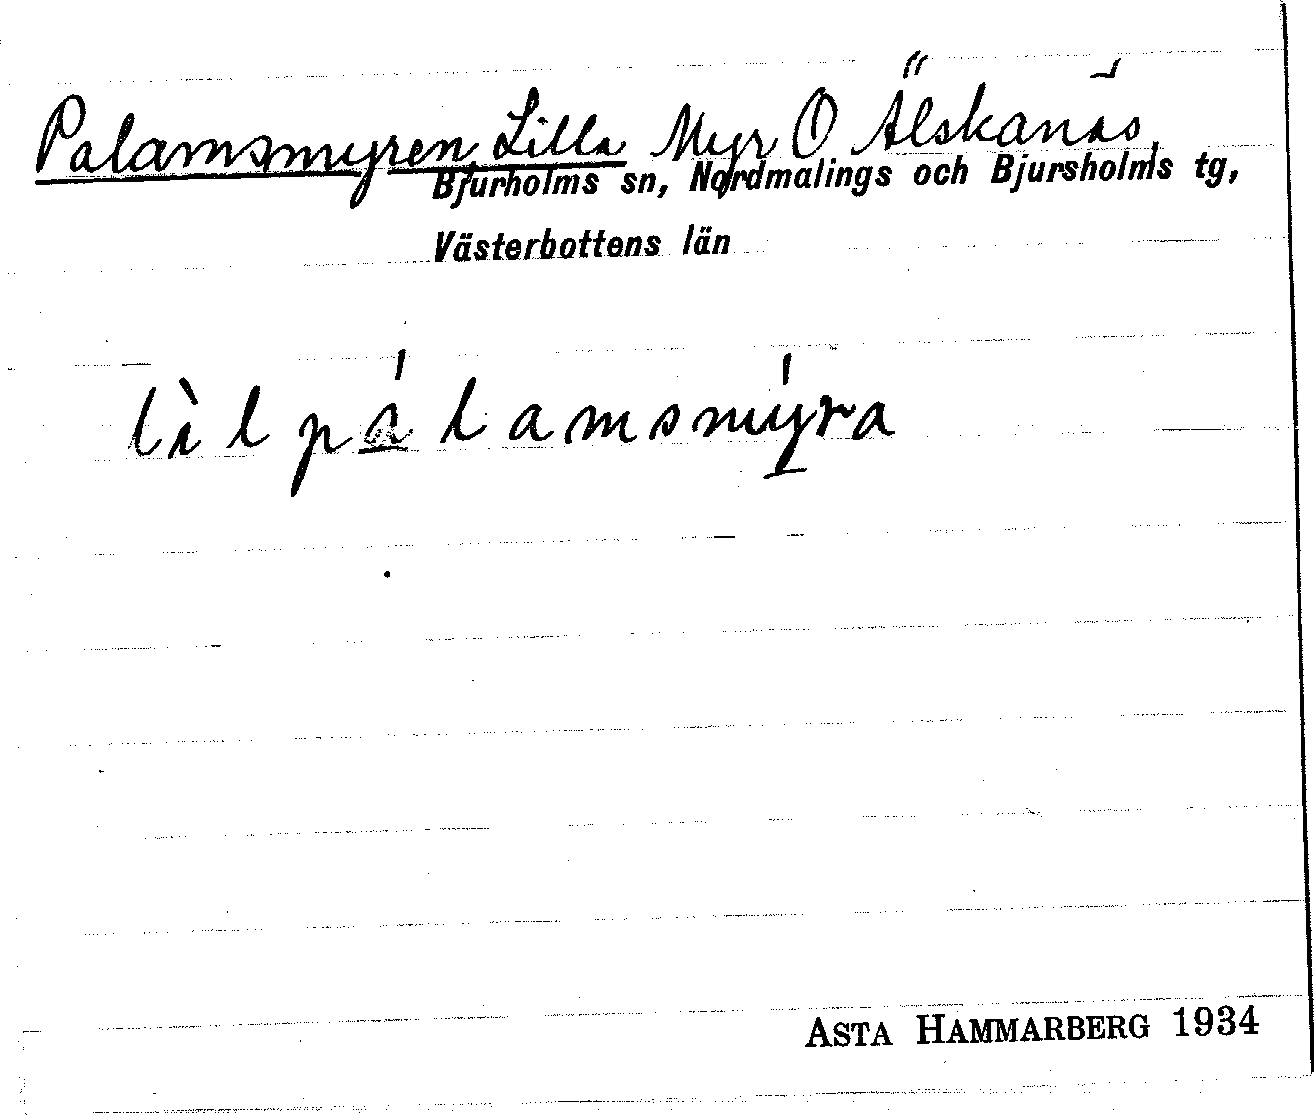 Palamsmyren, Lilla Myr O Älskanäs,
Bjurholms sn, Nordmalings och Bjursholms tg,
Västerbottens län
lìlpálamsmýra
ASTA HAMMARBERG 1934